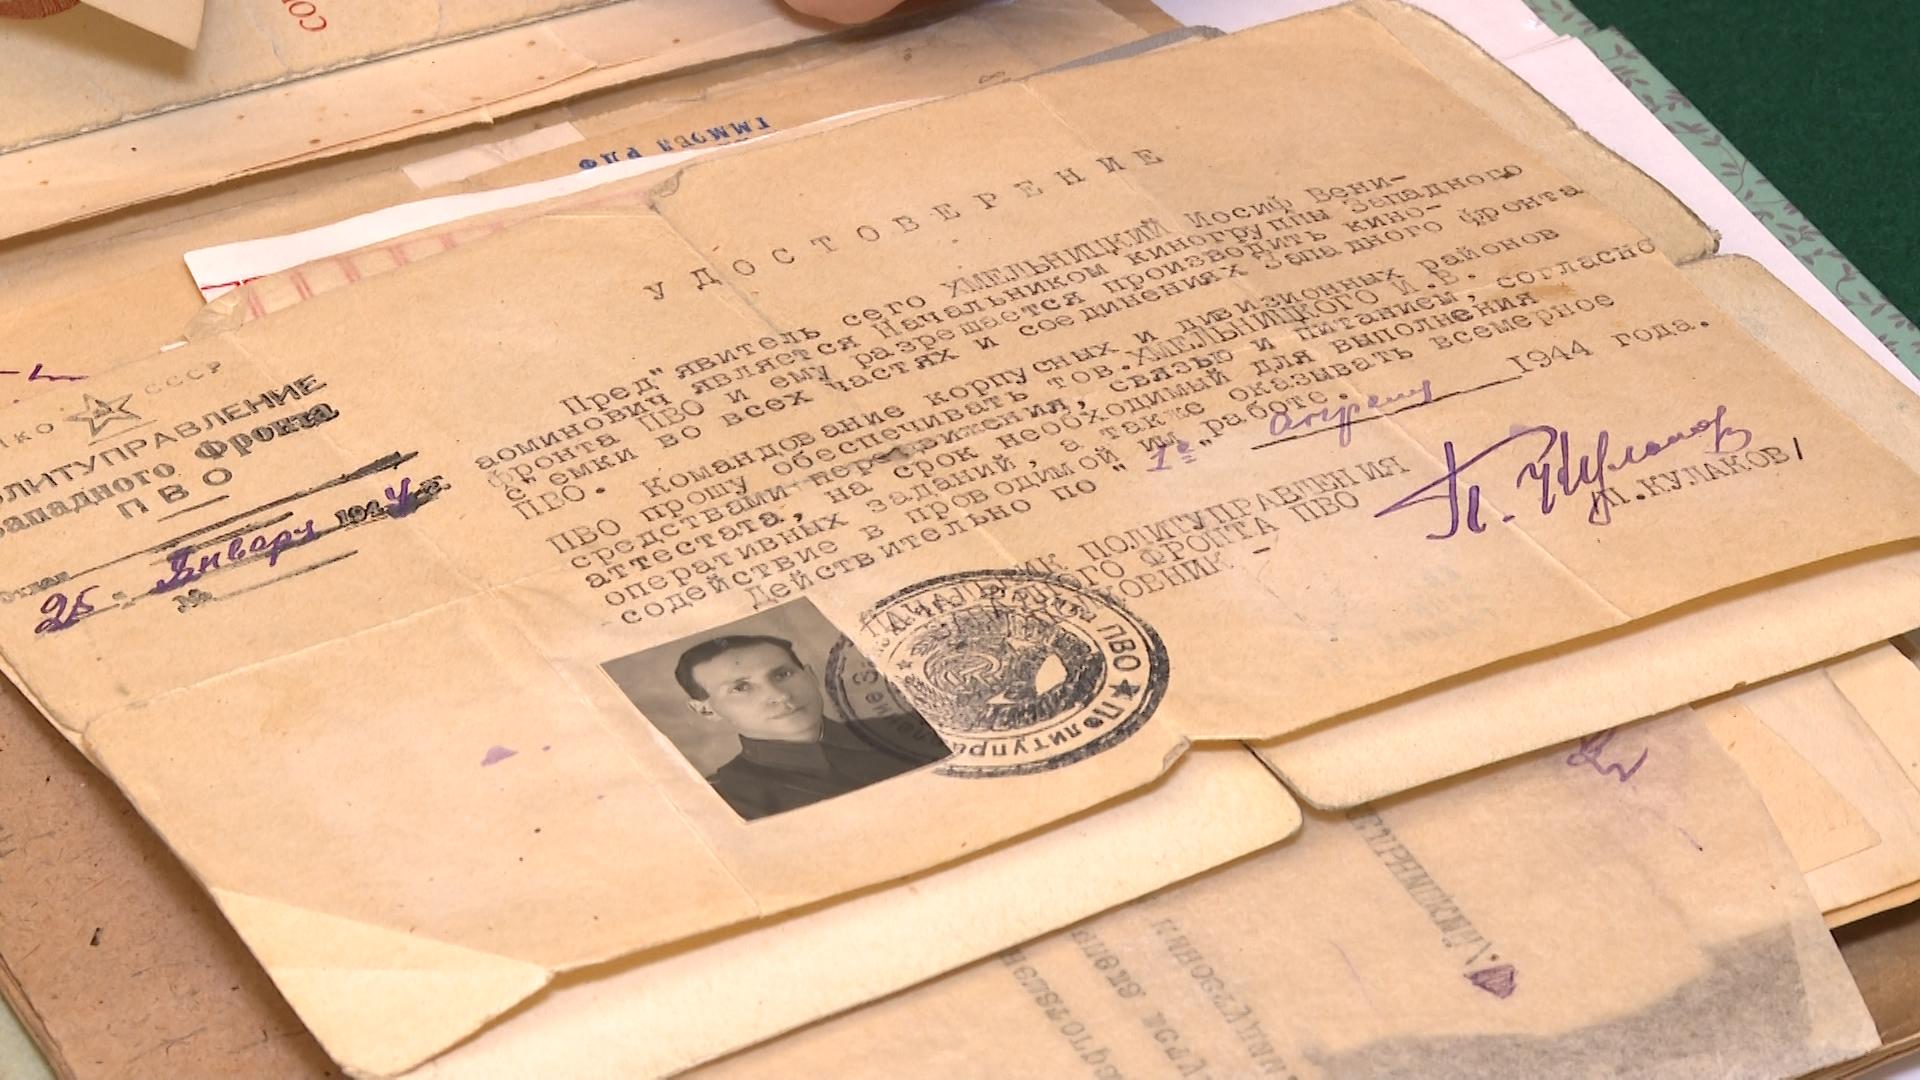 СО
ГММОБЛ РДФ
НКО СССР
ПОЛИТУПРАВЛЕНИЕ
Западного Фронта
ПВО
25 Января 1944 г.
№
УДОСТОВЕРЕНИЕ
Пред"явитель сего ХМЕЛЬНИЦКИЙ Иосиф Вени-
аминович является Начальником киногруппы Западного
фронта ПВО и ему разрешается производить кино-
с"емки во всех частях и соединениях Западного фронта
ПВО.
Командование корпусных и дивизионных районов
ПВО прошу обеспечивать тов.ХМЕЛЬНИЦКОГО И.В.
средствами передвижения, связью и питанием, согласно
аттестата, на срок необходимый для выполнения
оперативных заданий, а также оказывать всемерное
содействие в проводимой им работе.
Действительно по "1е" апреля 1944 года.
НАЧАЛЬНИК ПОЛИТУПРАВЛЕНИЯ
ЗАПАДНОГО ФРОНТА ПВО
ПОЛКОВНИК -
П. Кулаков
/П.КУЛАКОВ/
ПВО ★ Политупра